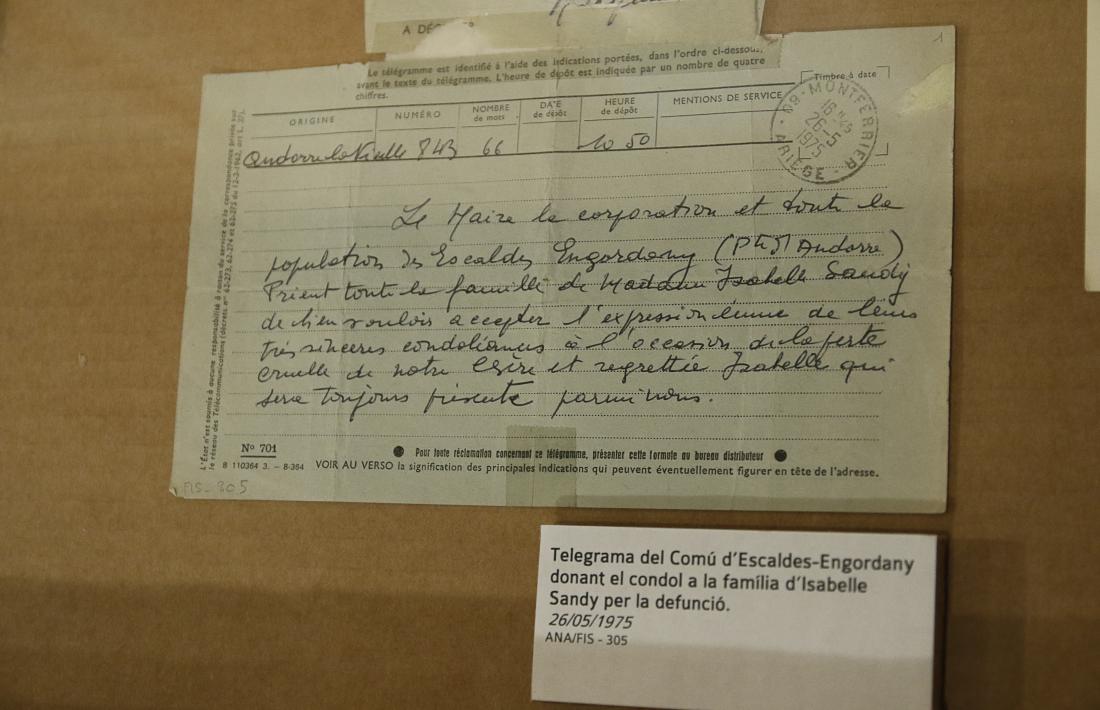 A DÉC
Le télégramme est identifié à l'aide des indications portées, dans l'ordre ci-dessous,
avant le texte du télégramme. L'heure de dépôt est indiquée par un nombre de quatre
chiffres.
1
Timbre à date
ORIGINE NUMÉRO NOMBRE de mots DATE de dépôt HEURE de dépôt MENTIONS DE SERVICE
Andorre la Vieille 843 66 10 50
N9 - MONTFERRIER
16 H 45
26-5
1975
ARIÈGE
Le Maire la corporation et toute la
population des Escaldes Engordany (Pté d'Andorre)
Prient toute la famille de Madame Isabelle Sandy
de bien vouloir accepter l'expression émue de leurs
très sincères condoléances à l'occasion de la perte
cruelle de notre chère et regrettée Isabelle qui
sera toujours présente parmi nous.
L'État n'est soumis à aucune responsabilité à raison du service de la correspondance privée sur
le réseau des Télécommunications
N° 701
Pour toute réclamation concernant ce télégramme, présenter cette formule au bureau distributeur
B 110364 3. - 8-364 VOIR AU VERSO la signification des principales indications qui peuvent éventuellement figurer en tête de l'adresse.
FIS-305
Telegrama del Comú d'Escaldes-Engordany
donant el condol a la família d'Isabelle
Sandy per la defunció.
26/05/1975
ANA/FIS - 305